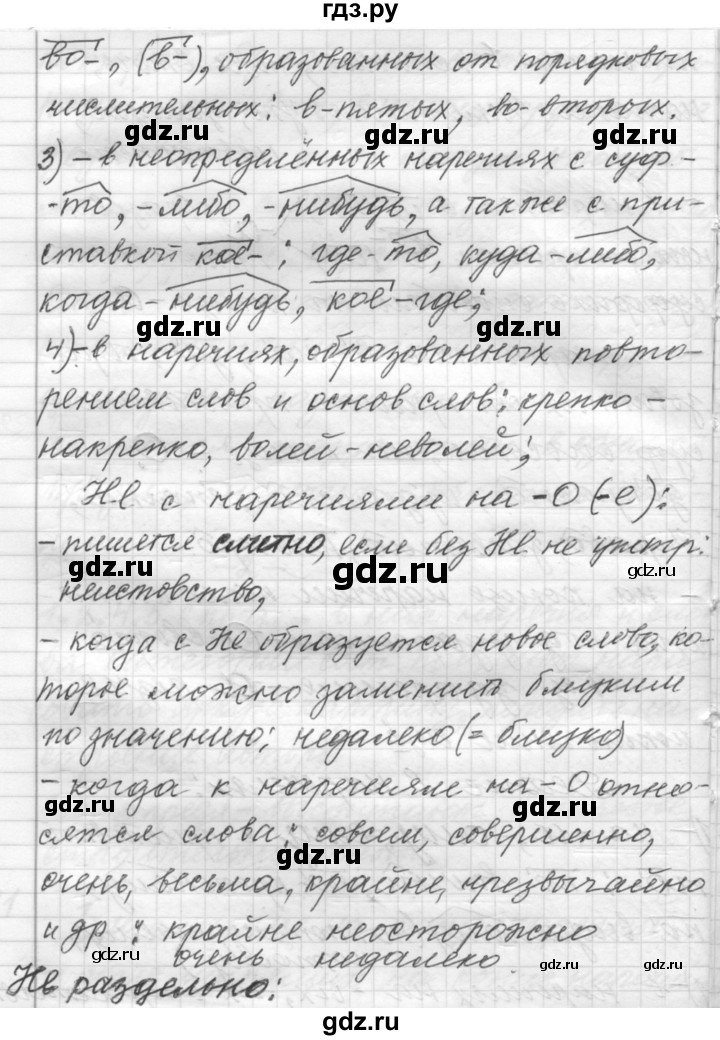 гдз.ру
во-, (в-), образованных от порядковых
числительных: в-пятых, во-вторых.
gdz.ru gdz.ru
3) - в неопределённых наречиях с суф-
-то, -либо, -нибудь, а также с при-
ставкой кое-: где-то, куда-либо,
когда-нибудь, кое-где;
gdz.ru gdz.ru
4) - в наречиях, образованных повто-
рением слов и основ слов: крепко-
накрепко, волей-неволей;
Не с наречиями на -о (-е):
- пишется слитно, если без Не не употр:
gdz.ru gdz.ru gdz.ru
неистовство,
- когда с Не образуется новое слово, ко-
торое можно заменить близким
по значению: недалеко (= близко)
- когда к наречиям на -О отно-
gdz.ru gdz.ru
сятся слова: совсем, совершенно,
gdz.ru
очень, весьма, крайне, чрезвычайно
и др: крайне неосторожно
gdz.ru очень недалеко. gdz.ru
Не раздельно:
gdz.ru